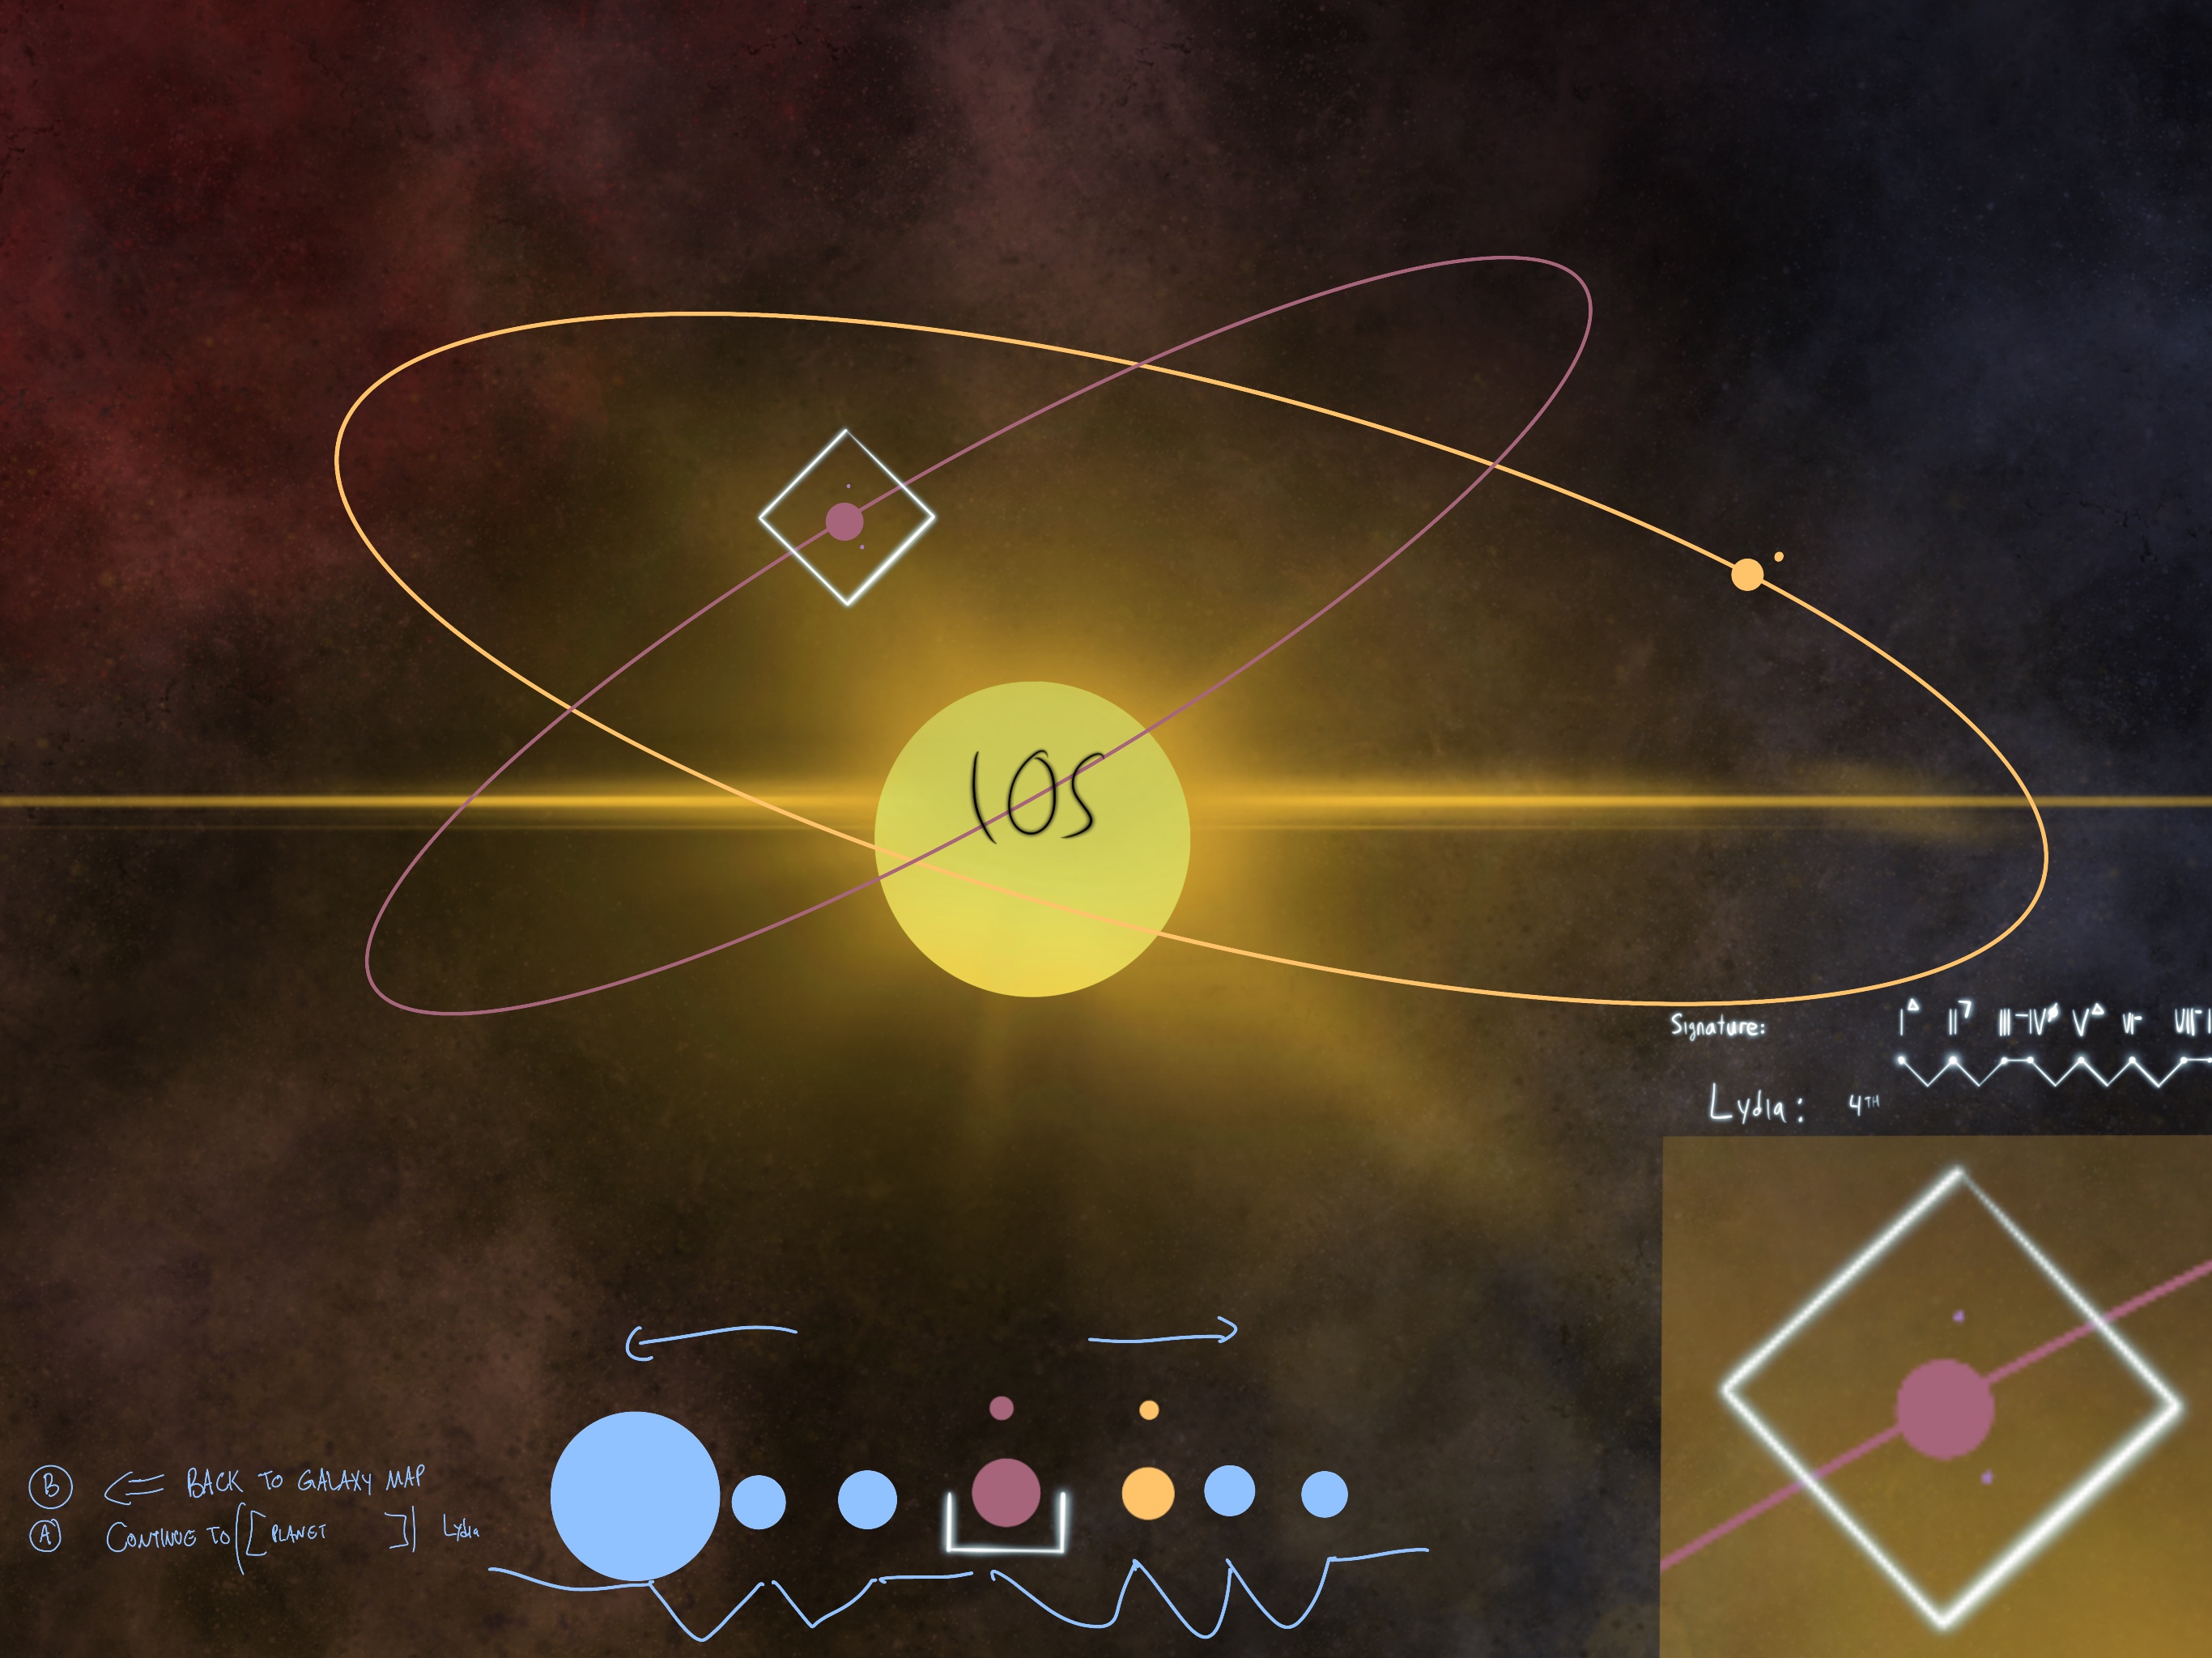 IOS
Signature: I△ II7 III-IVø V△ VI- VII-
Lydia: 4TH
B ← BACK TO GALAXY MAP
A CONTINUE TO [PLANET ] Lydia